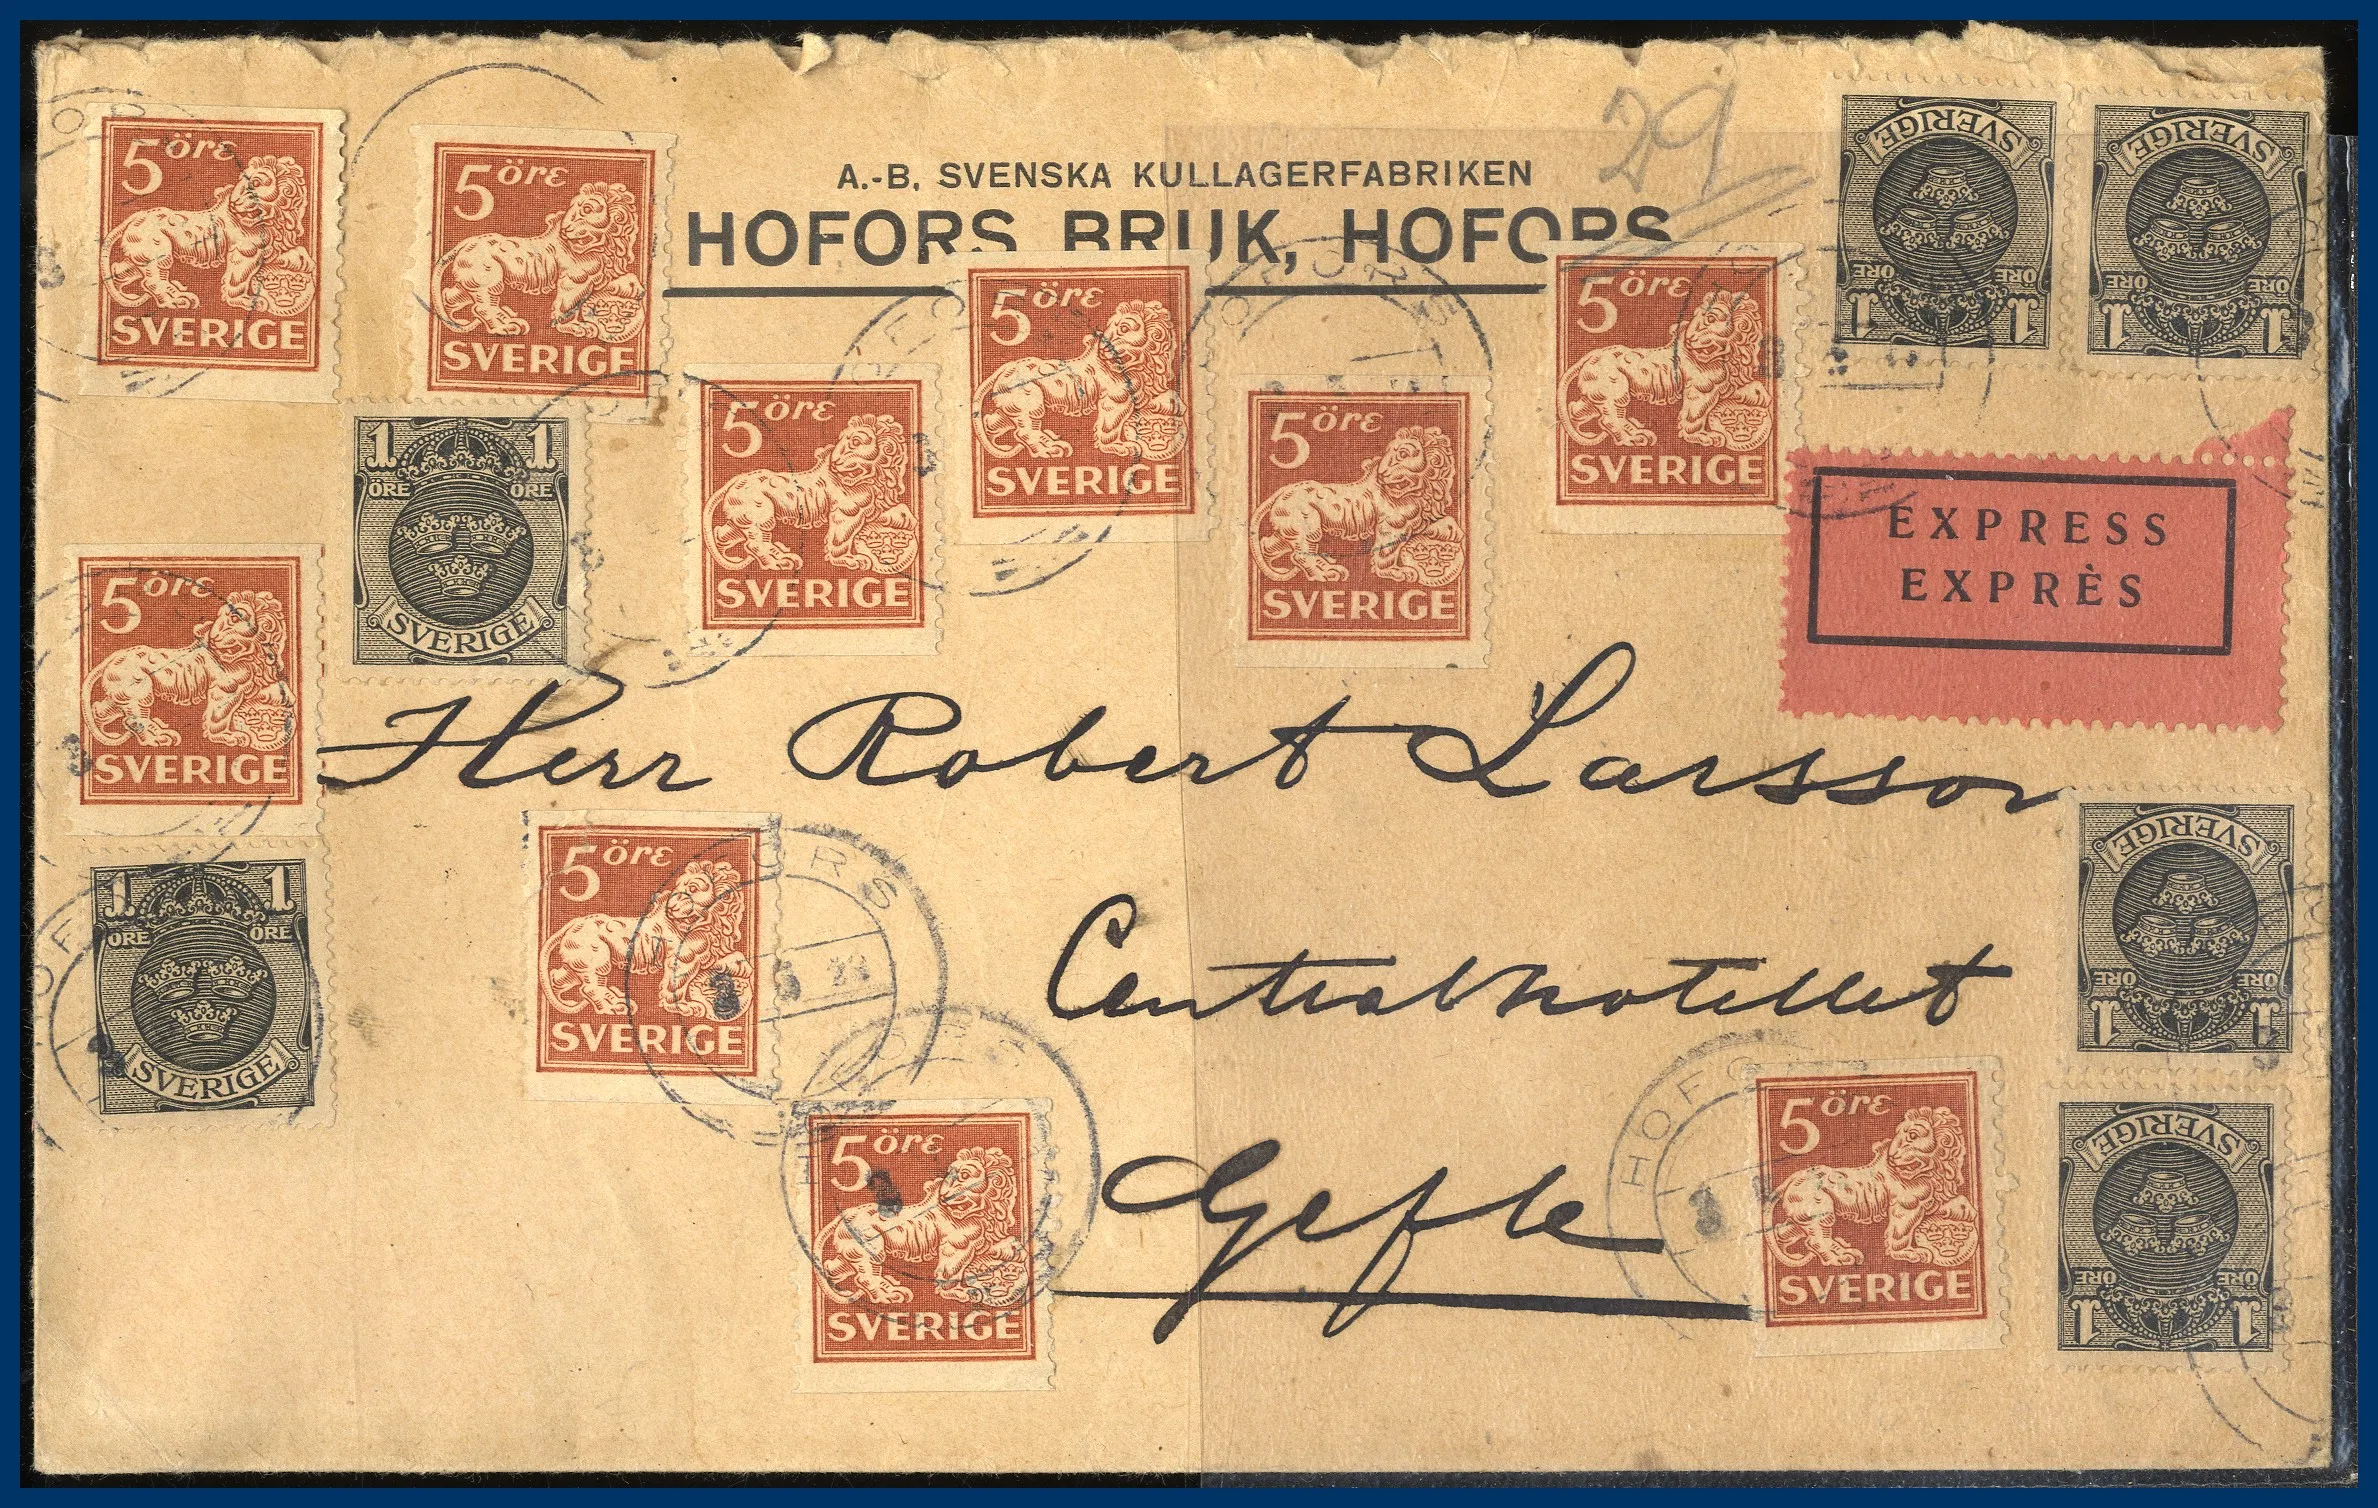 29
A.-B. SVENSKA KULLAGERFABRIKEN
HOFORS BRUK, HOFORS
5 öre
SVERIGE
5 öre
SVERIGE
5 öre
SVERIGE
5 öre
SVERIGE
5 öre
SVERIGE
5 öre
SVERIGE
SVERIGE
ÖRE ÖRE
1 1
SVERIGE
ÖRE ÖRE
1 1
1 1
ÖRE ÖRE
SVERIGE
EXPRESS
EXPRÈS
5 öre
SVERIGE
Herr Robert Larsson
1 1
ÖRE ÖRE
SVERIGE
5 öre
SVERIGE
HOFORS
Centralhotellet
SVERIGE
ÖRE ÖRE
1 1
5 öre
SVERIGE
Gefle
5 öre
SVERIGE
SVERIGE
ÖRE ÖRE
1 1